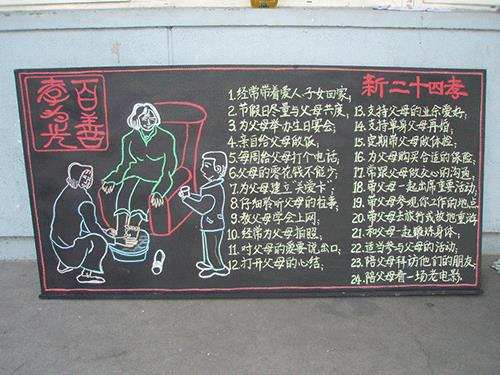 百善
孝为先
新二十四孝
1.经常带着爱人、子女回家;
2.节假日尽量与父母共度;
3.为父母举办生日宴会;
4.亲自给父母做饭;
5.每周给父母打个电话;
6.父母的零花钱不能少;
7.为父母建立“关爱卡”;
8.仔细聆听父母的往事;
9.教父母学会上网;
10.经常为父母拍照;
11.对父母的爱要说出口;
12.打开父母的心结;
13.支持父母的业余爱好;
14.支持单身父母再婚;
15.定期带父母做体检;
16.为父母购买合适的保险;
17.常跟父母做交心的沟通;
18.带父母一起出席重要活动;
19.带父母参观你工作的地点
20.带父母去旅行或故地重游
21.和父母一起锻炼身体;
22.适当参与父母的活动;
23.陪父母拜访他们的朋友;
24.陪父母看一场老电影.